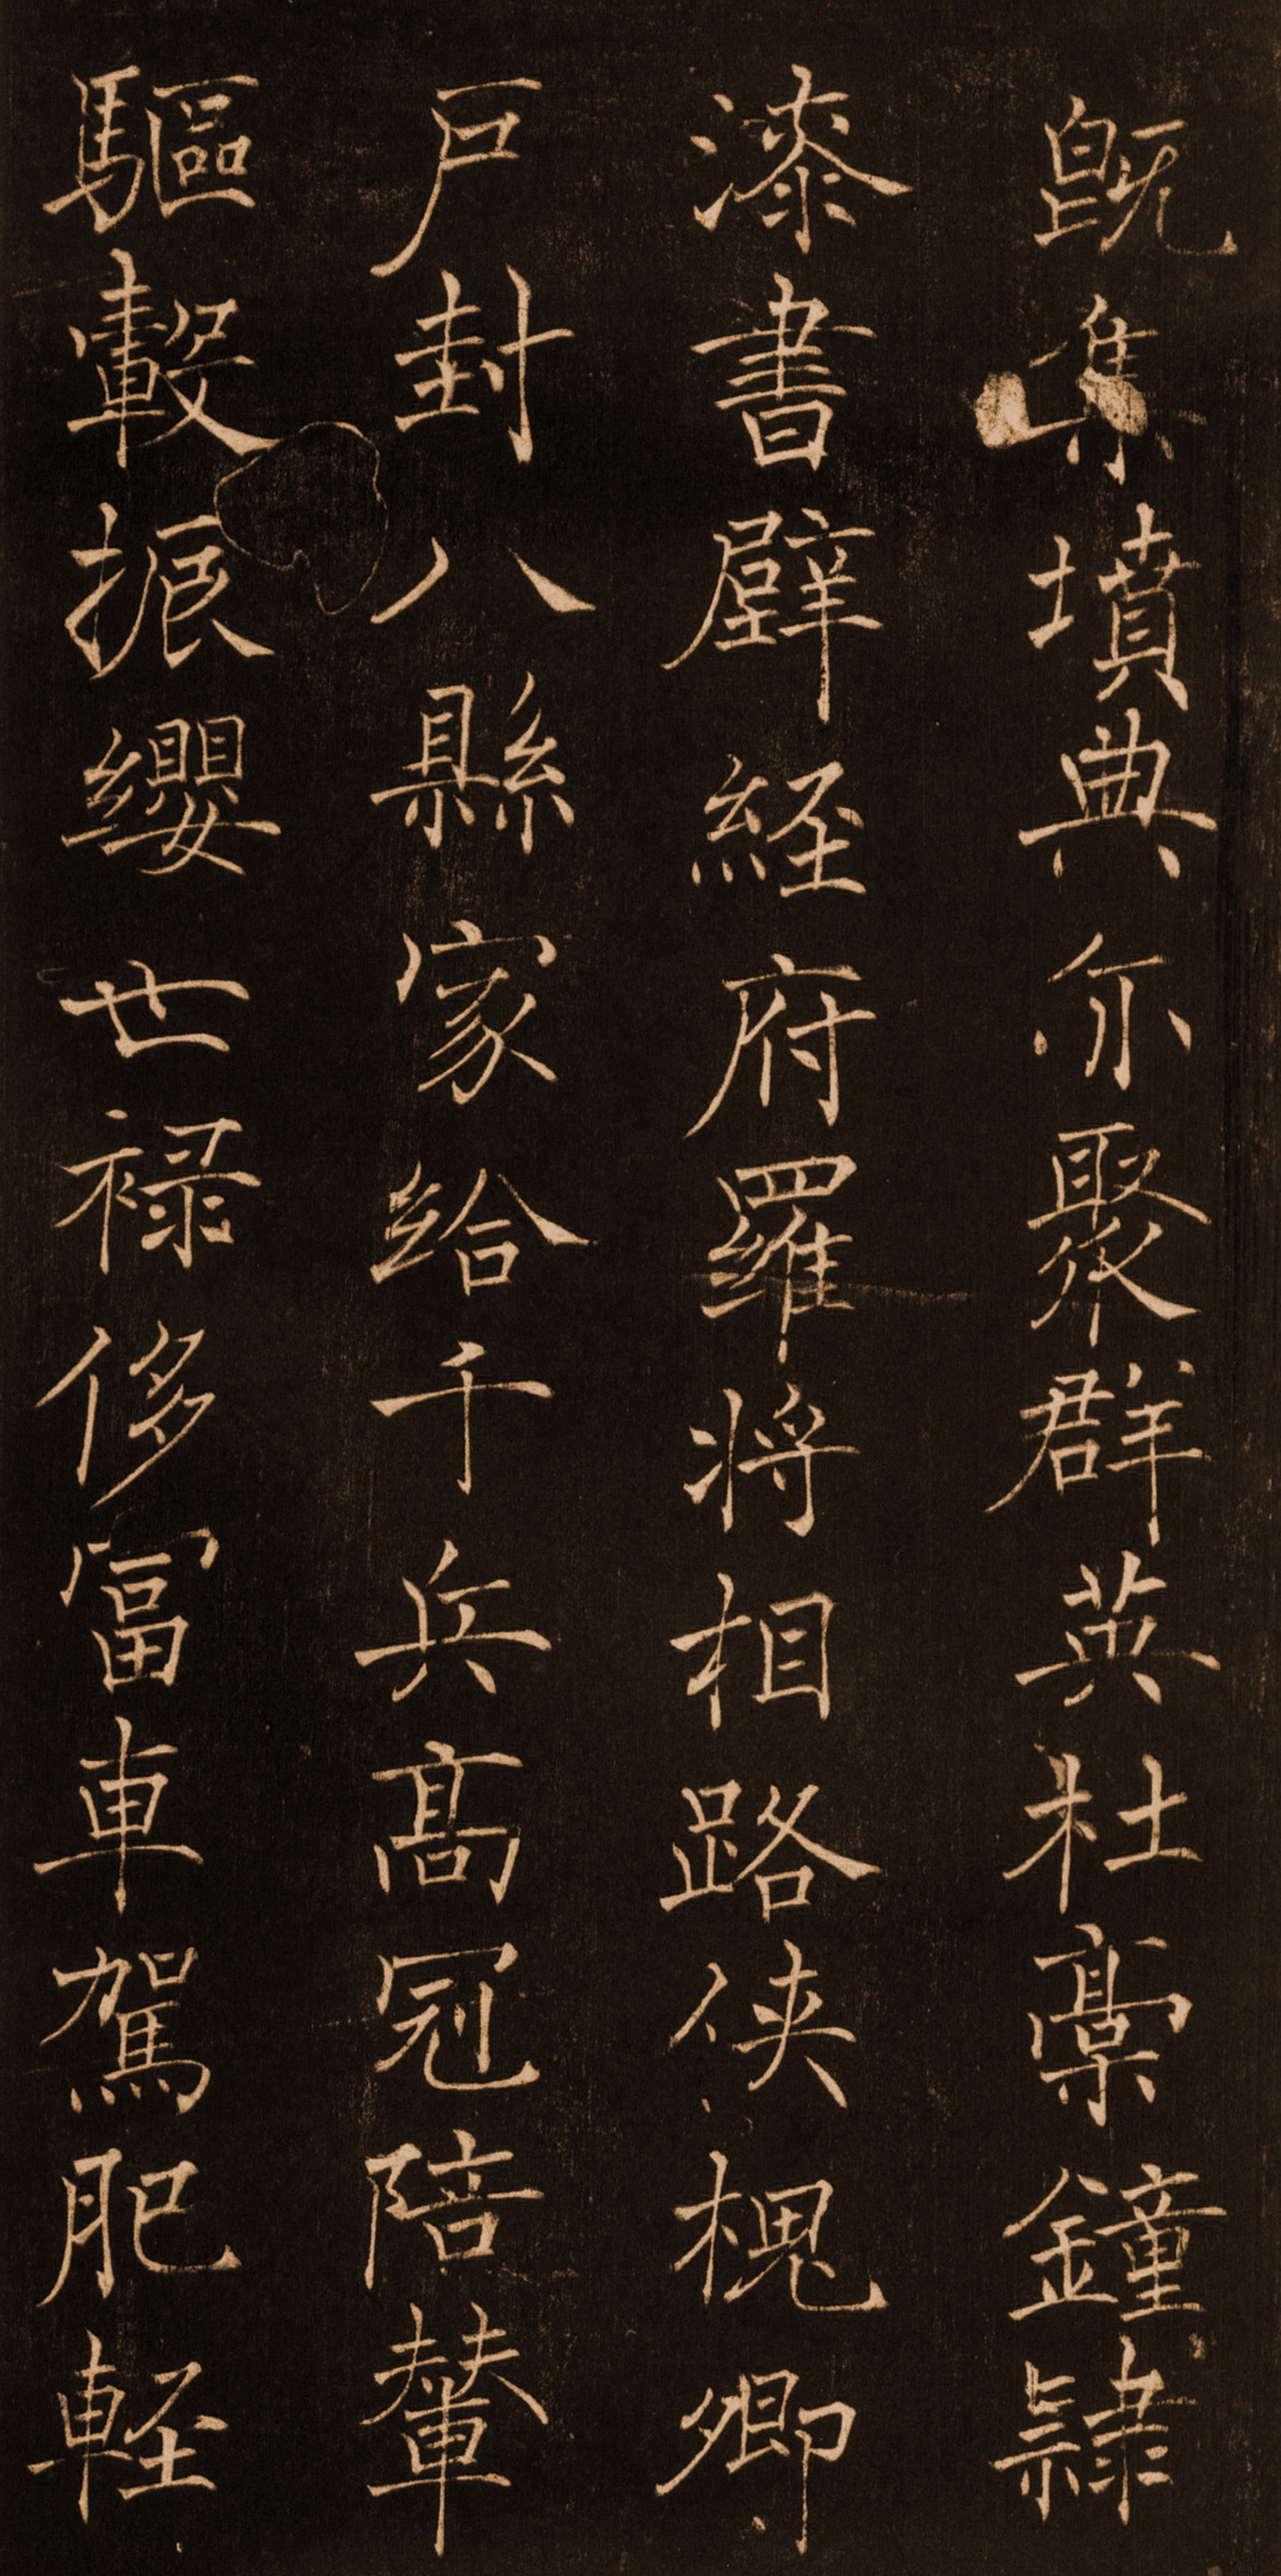 既集墳典亦聚群英杜稾鍾隸
漆書壁經府羅将相路俠槐卿
戶封八縣家給千兵高冠陪輦
驅轂振纓世禄侈富車駕肥軽